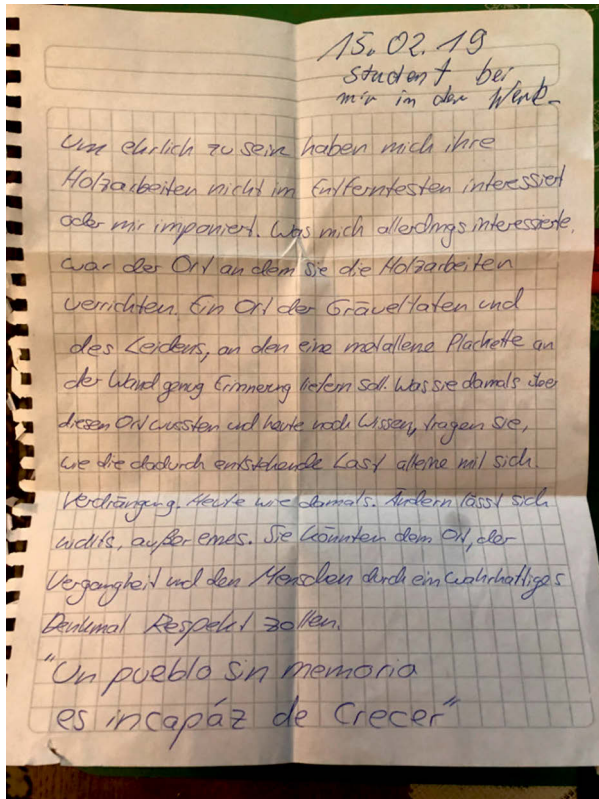 15.02.19
Student bei
mir in der Werk-
Um ehrlich zu sein haben mich ihre
Holzarbeiten nicht im Entferntesten interessiert
oder mir imponiert. Was mich allerdings interessierte,
war der Ort an dem sie die Holzarbeiten
verrichten. Ein Ort der Gräueltaten und
des Leidens, an den eine metallene Plachette an
der Wand genug Erinnerung liefern soll. Was sie damals über
diesen Ort wussten und heute noch Wissen, tragen sie,
wie die dadurch entstehende Last alleine mit sich.
Verdrängung. Heute wie damals. Ändern lässt sich
nichts, außer eines. Sie könnten dem Ort, der
Vergangheit und den Menschen durch ein wahrhaftiges
Denkmal Respekt zollen.
"Un pueblo sin memoria
es incapáz de crecer"